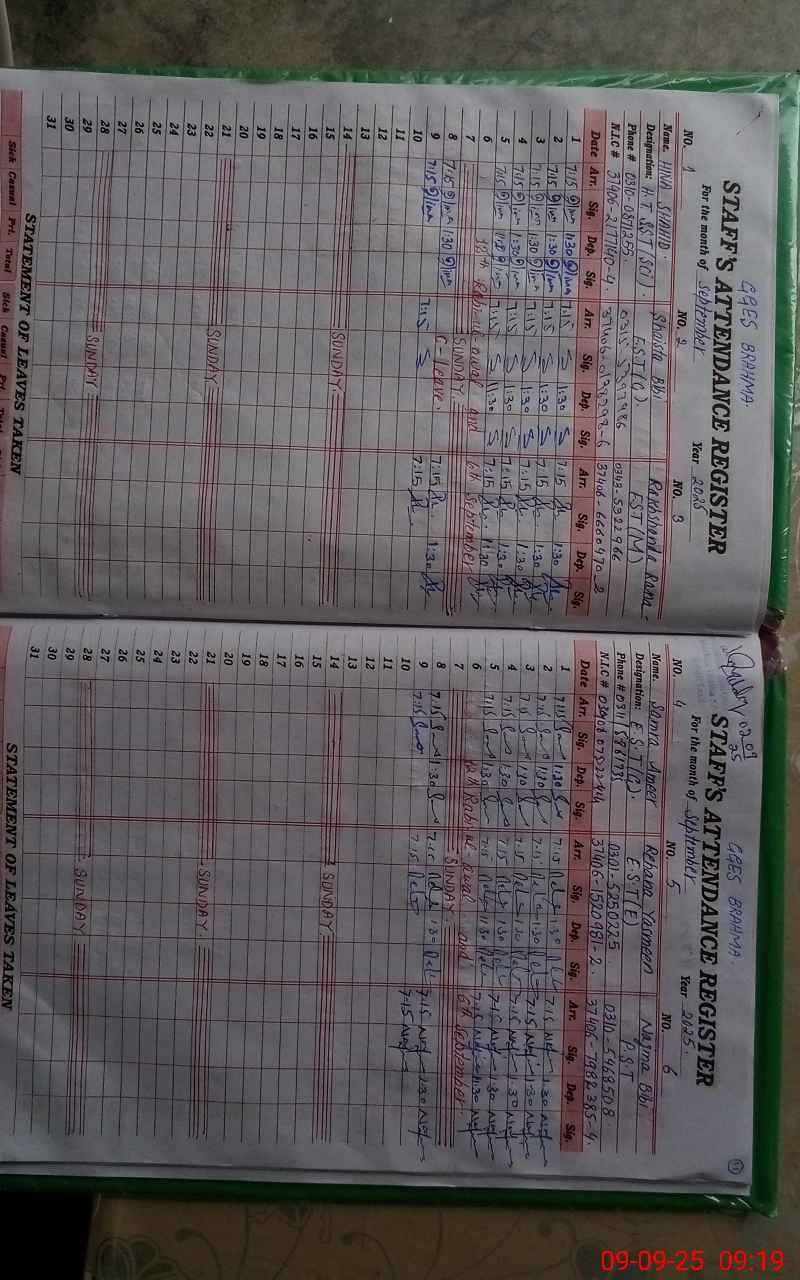 GGES BRAHMA.
STAFF'S ATTENDANCE REGISTER
For the month of September Year 2025
NO. 1 NO. 2 NO. 3
Name. HINA SHAHID. Shaista Bibi Rakhshanda Rama
Designation: H.T SST (Sci). E.S.T (G). EST (M)
Phone # 0343-5322966
N.I.C #
Date Arr. Sig. Dep. Sig. Arr. Sig. Dep. Sig. Arr. Sig. Dep. Sig.
1 7:15 1:30 7:15 1:30 7:15 1:30
2 7:15 1:30 7:15 1:30 7:15 1:30
3 7:15 1:30 7:15 1:30 7:15 1:30
4 7:15 1:30 7:15 1:30 7:15 1:30
5 7:15 11:30 7:15 11:30 7:15 11:30
6 12th Rabiul awal and 6th September
7 SUNDAY
8 7:15 1:30 C-Leave. 7:15 1:30
9 7:15 7:15 7:15
10
11
12
13
14 SUNDAY.
15
16
17
18
19
20
21 SUNDAY
22
23
24
25
26
27
28 SUNDAY
29
30
31
STATEMENT OF LEAVES TAKEN
Sick Casual Prt. Total Sick Casual Prt. Total
GGES BRAHMA.
STAFF'S ATTENDANCE REGISTER
For the month of September Year 2025.
NO. 4 NO. 5 NO. 6
Name. Samra Ameer Rehana Yasmeen Najma Bibi
Designation: E.S.T (G). E.S.T (E) P.S.T
Phone # 0301-5250225. 0310-5468508.
N.I.C # 37406-1520981-2. 37406-7982385-4.
Date Arr. Sig. Dep. Sig. Arr. Sig. Dep. Sig. Arr. Sig. Dep. Sig.
1 7:15 1:30 7:15 1:30 7:15 1:30
2 7:15 1:30 7:15 1:30 7:15 1:30
3 7:15 1:30 7:15 1:30 7:15 1:30
4 7:15 1:30 7:15 1:30 7:15 1:30
5 7:15 11:30 7:15 11:30 7:15 11:30
6 12th Rabiul-Awal and 6th September.
7 SUNDAY.
8 7:15 1:30 7:15 1:30 7:15 1:30
9 7:15 7:15 7:15
10
11
12
13
14 SUNDAY
15
16
17
18
19
20
21 SUNDAY.
22
23
24
25
26
27
28 SUNDAY.
29
30
31
STATEMENT OF LEAVES TAKEN
09-09-25 09:19